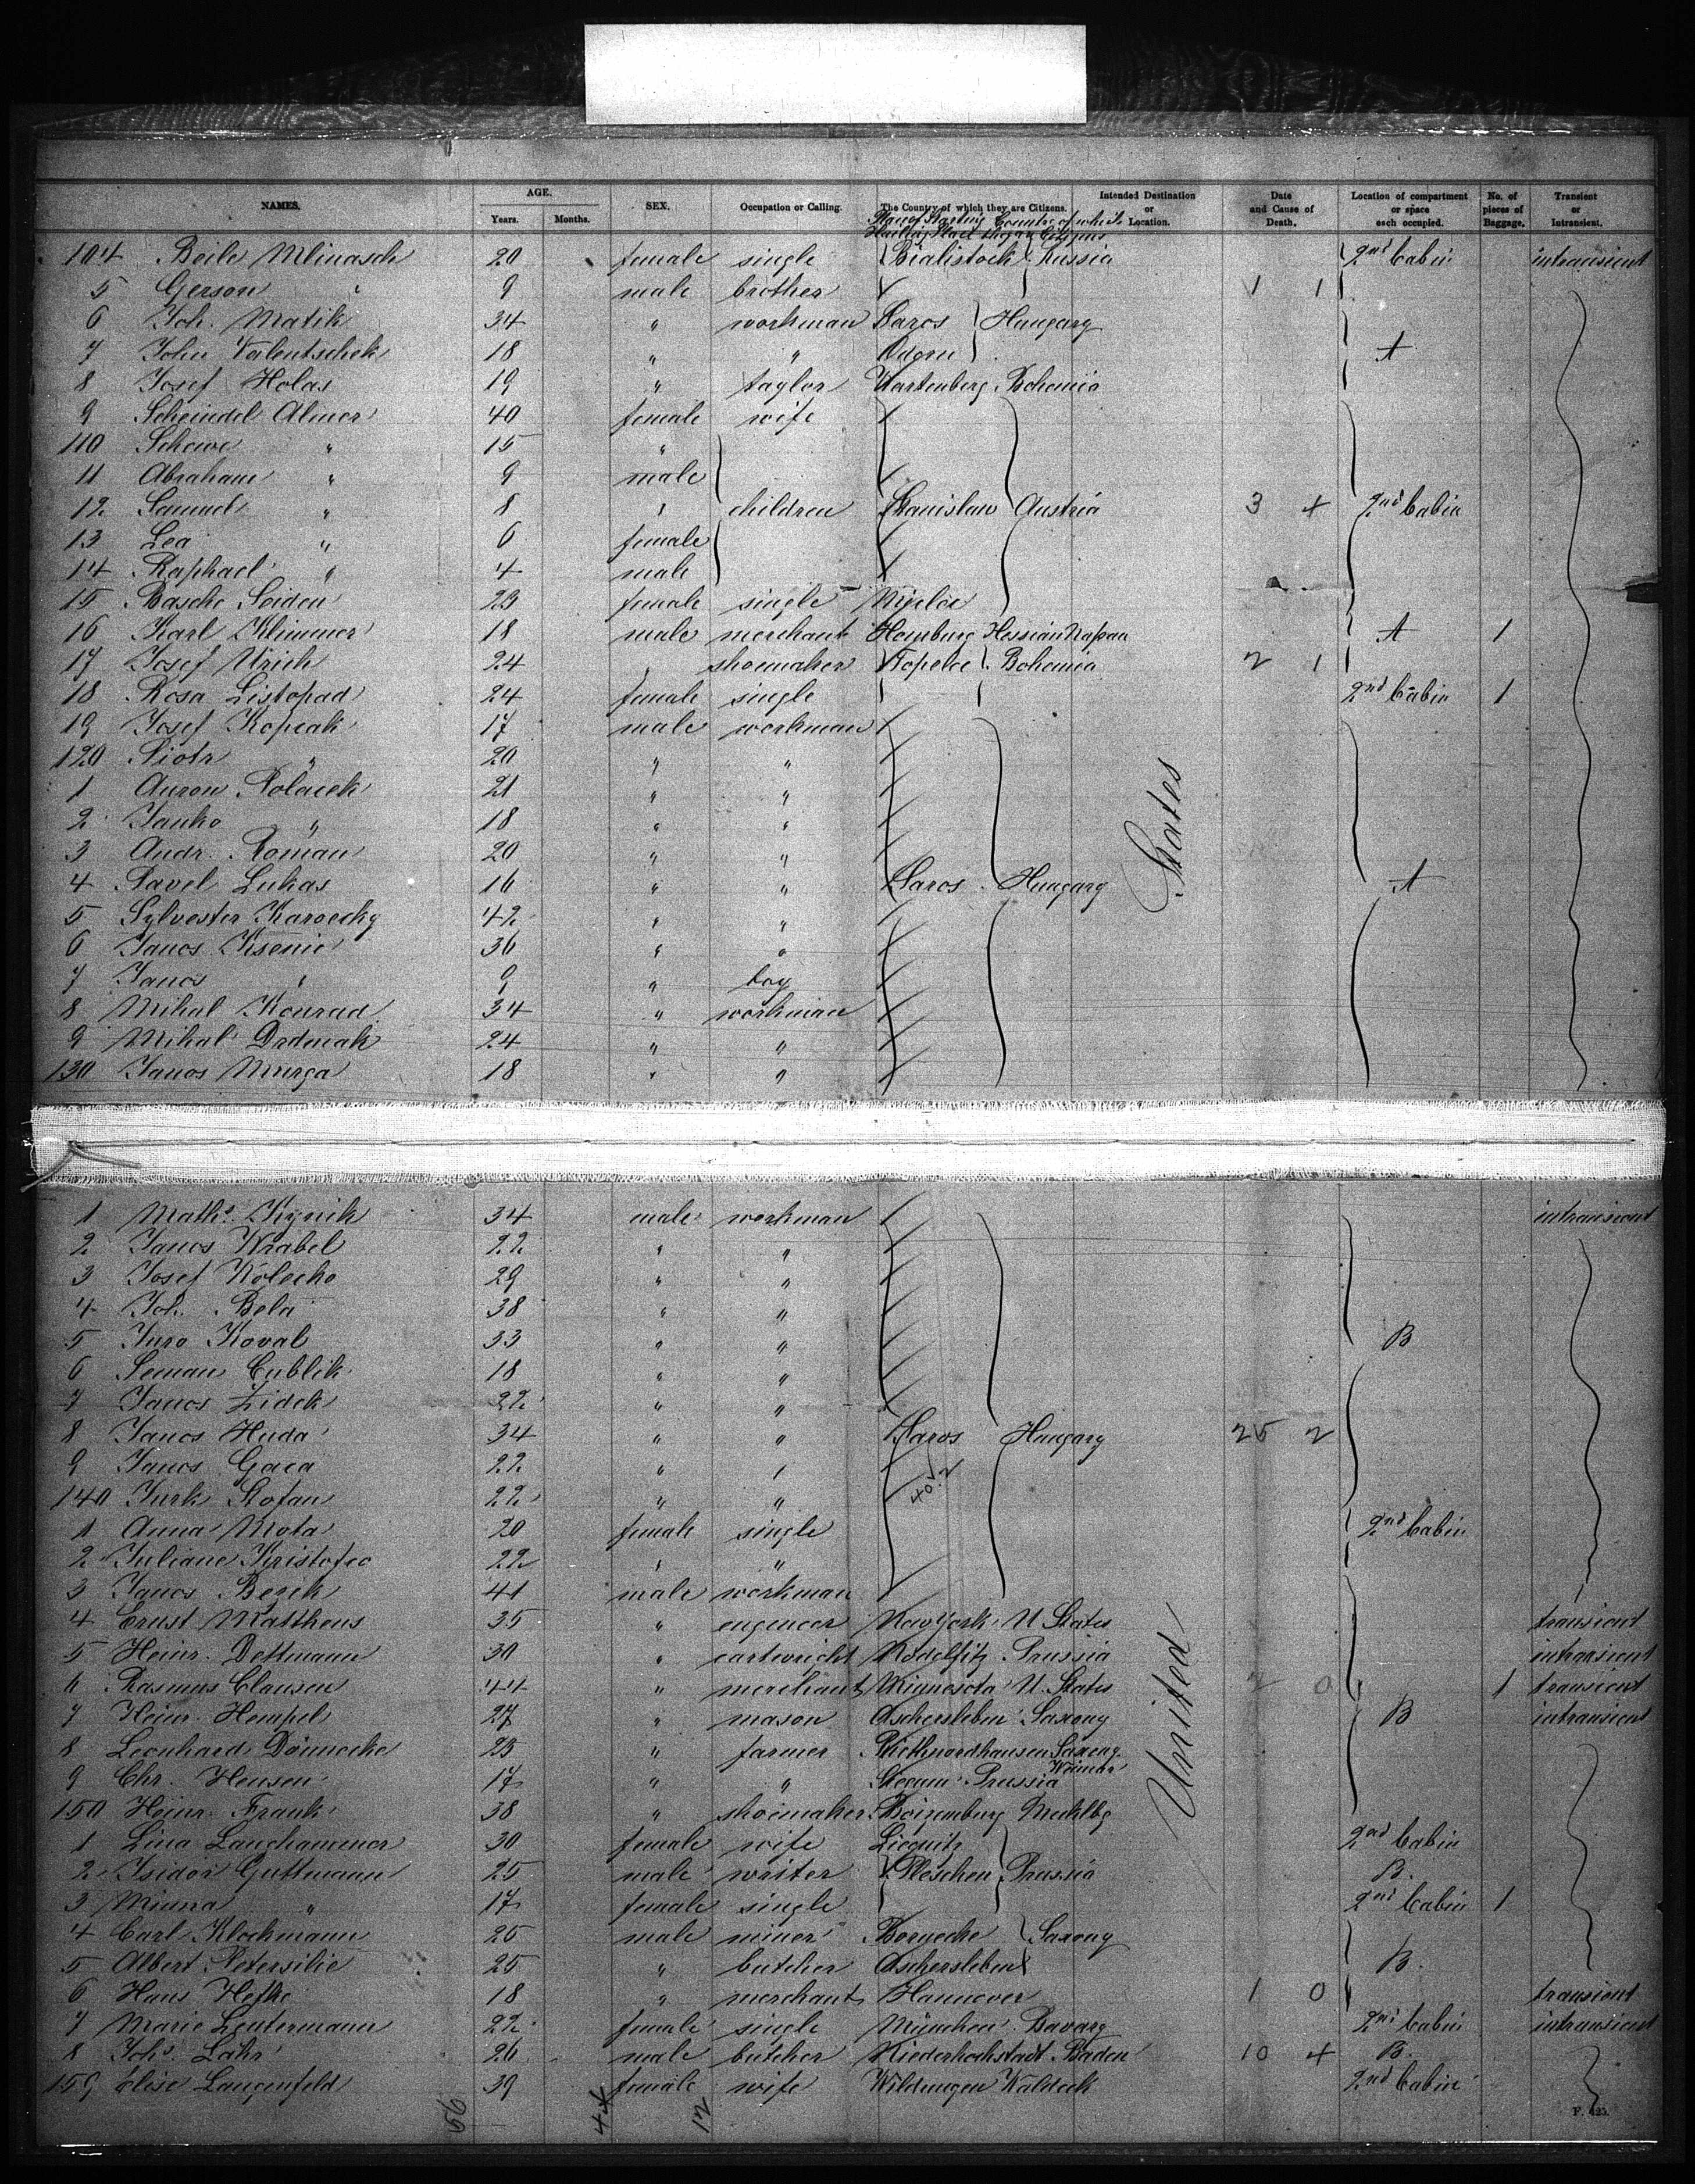 NAMES. AGE. Years. Months. SEX. Occupation or Calling. The Country of which they are Citizens. Intended Destination or Location. Date and Cause of Death. Location of compartment or space each occupied. No. of pieces of Baggage. Transient or Intransient.
Place of Starting Country of which
Hailing Place they are Citizens
104 Beile Mlinasch 20 female single Bialistock Russia 2nd Cabin intransient
5 Gerson 9 male brother 1 1
6 Joh. Matik 34 " workman Saros Hungary
7 John Valentschek 18 " " A
8 Josef Holas 19 " taylor Wartenberg Bohemia
9 Scheindel Almer 40 female wife
110 Schewe " 15 "
11 Abraham " 9 male
12 Samuel " 8 " children Stanislau Austria 3 4 2nd Cabin
13 Lea " 6 female
14 Raphael " 4 male
15 Basche Seiden 23 female single Myelce
16 Karl Klimmer 18 male merchant Homburg Hessian Nassau A 1
17 Josef Urich 24 " shoemaker Kopelce Bohemia 2 1
18 Rosa Listopad 24 female single 2nd Cabin 1
19 Josef Kopcak 17 male workman
120 Piotr " 20 " "
1 Auron Polacek 21 " "
2 Janko " 18 " "
3 Andr. Roman 20 " "
4 Pavel Lukas 16 " " Saros Hungary A
5 Sylvester Karoecky 42 " "
6 Janos Ksenic 36 " "
7 Janos " 9 " boy
8 Mihal Konrad 34 " workman
9 Mihal Drdmak 24 " "
130 Janos Murga 18 " "
States
1 Maths. Kynik 34 male workman intransient
2 Janos Wrabel 22 " "
3 Josef Kolecko 29 " "
4 Joh. Bela 38 " "
5 Juro Koval 33 " " B
6 Seman Cublik 18 " "
7 Janos Zidek 22 " "
8 Janos Huda 34 " " Saros Hungary 25 2
9 Janos Gaca 22 " "
140 Jurk Stofan 22 " "
1 Anna Mota 20 female single 2nd Cabin
2 Juliane Kristofco 22 " "
3 Janos Berek 41 male workman
4 Ernst Mattheus 35 " engeneer New York U States transient
5 Heinr. Dettmann 30 " cartwright Prussia intransient
6 Rasmus Clausen 44 " merchant Mignesota U. States 2 0 1 transient
7 Heinr. Hempel 27 " mason Aschersleben Saxony B intransient
8 Leonhard Dönnecke 23 " farmer Riethnordhausen Saxony Weimar
9 Chr. Hensen 17 " " Prussia
150 Heinr. Frank 38 " shoemaker Boizemburg Meklbg
1 Lina Langhammer 30 female wife Liegnitz 2nd Cabin
2 Isidor Guttmann 25 male writer Pleschen Prussia B.
3 Minna " 17 female single 2nd Cabin 1
4 Carl Klockmann 25 male miner Bornecke Saxony
5 Albert Petersilie 25 " butcher Aschersleben B.
6 Hans Hefke 18 " merchant Hannover 1 0 transient
7 Marie Leutermann 22 female single München Bavary 2nd Cabin intransient
8 Johs. Lahr 26 male butcher Niederhochstadt Baden 10 4 B.
159 Elise Langenfeld 39 female wife Wildungen Waldeck 2nd Cabin
United
56 44 12